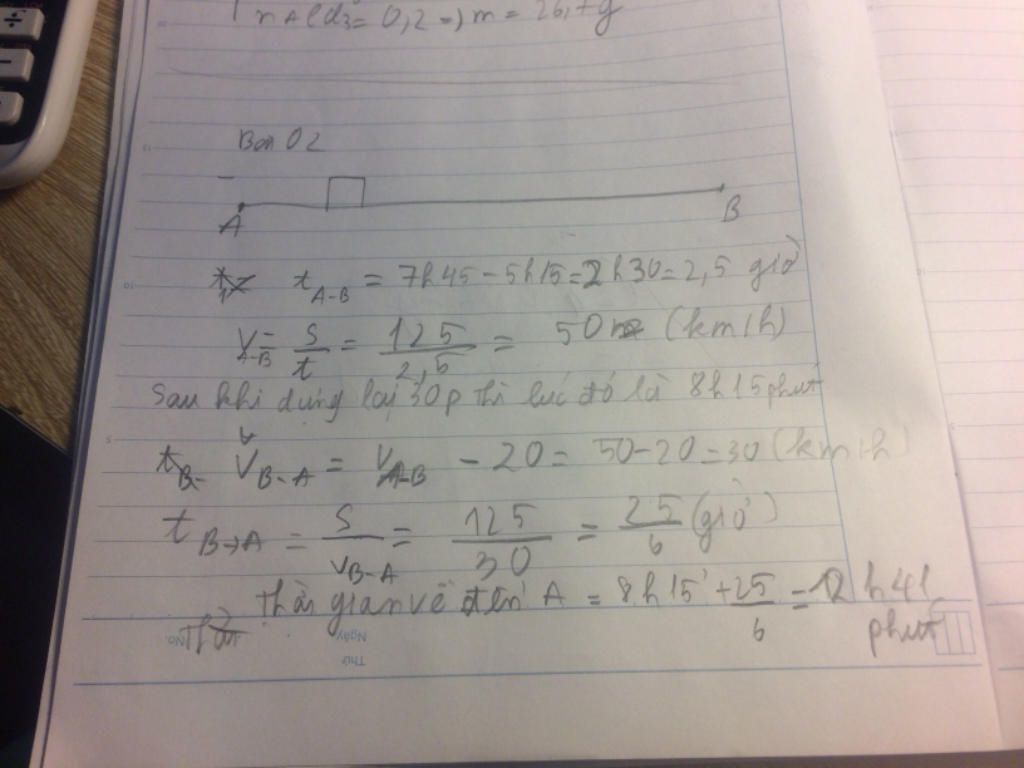 n AlCl3 = 0,2 => m = 26,7g
Bài 02
A B
t A-B = 7h45 - 5h15 = 2h30 = 2,5 giờ
V A-B = S/t = 125/2,5 = 50 (km/h)
Sau khi dừng lại 30p thì lúc đó là 8h15phut
V B-A = V A-B - 20 = 50-20 = 30 (km/h)
t B→A = S/V B-A = 125/30 = 25/6 (giờ)
Thời gian về đến A = 8h15' + 25/6 = 12 h 41
phut
No. Ngày
Thứ